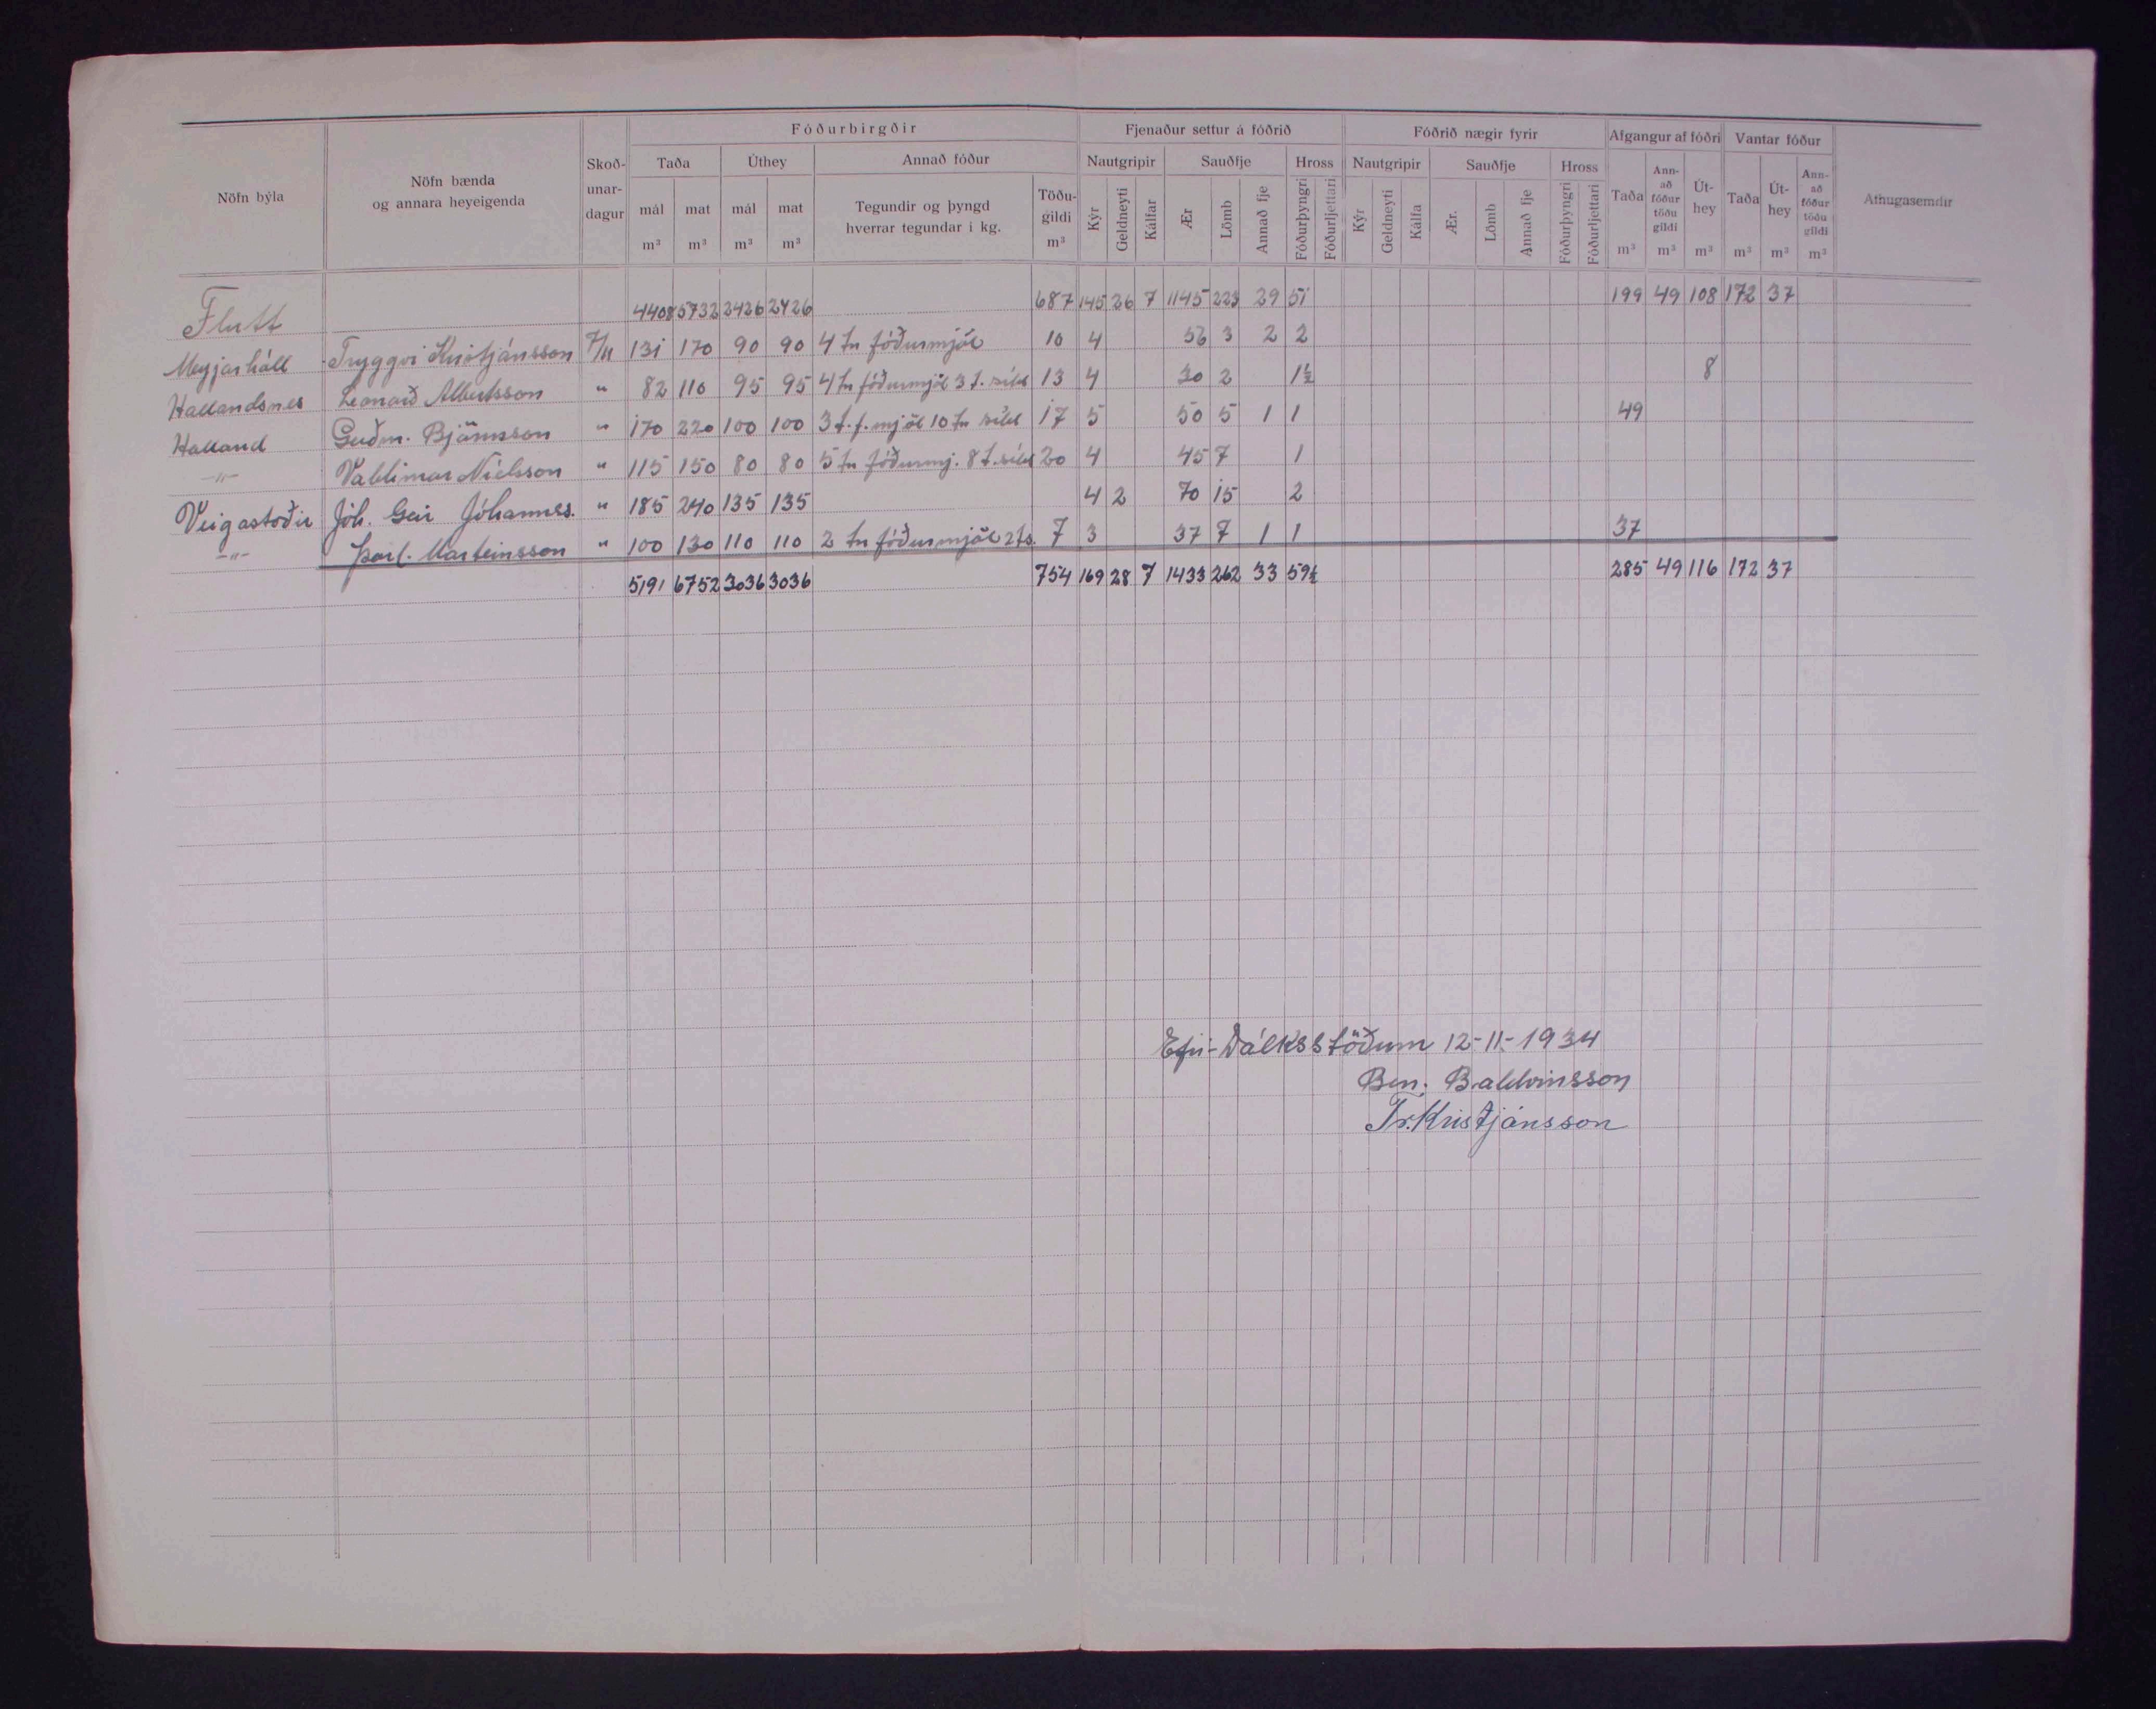 Nöfn býla
Nöfn bænda og annara heyeigenda
Skoðunardagur
Fóðurbirgðir
Taða
mál m³
mat m³
Úthey
mál m³
mat m³
Annað fóður
Tegundir og þyngd hverrar tegundar í kg.
Töðugildi m³
Fjenaður settur á fóðrið
Nautgripir
Kýr
Geldneyti
Kálfar
Sauðfje
Ær
Lömb
Annað fje
Hross
Fóðurþyngri
Fóðurljettari
Fóðrið nægir fyrir
Nautgripir
Kýr
Geldneyti
Kálfa
Sauðfje
Ær.
Lömb
Annað fje
Hross
Fóðurþyngri
Fóðurljettari
Afgangur af fóðri
Taða m³
Annað fóður töðu gildi m³
Úthey m³
Vantar fóður
Taða m³
Úthey m³
Annað fóður töðu gildi m³
Athugasemdir
Flutt 4408 5732 2426 2426 687 145 26 7 1145 223 29 51 199 49 108 172 37
Meyjarhóll Tryggvi Kristjánsson 7/11 131 170 90 90 4 tn fóðurmjöl 10 4 56 3 2 2
Hallandsnes Leonarð Albertsson " 82 110 95 95 4 tn fóðurmjöl 3 t. síld 13 4 30 2 1½ 8
Halland Guðm. Björnsson " 170 220 100 100 3 t. f. mjöl 10 tn síld 17 5 50 5 1 1 49
-"- Valdimar Níelsson " 115 150 80 80 5 tn fóðurmj. 8 t. síld 20 4 45 7 1
Veigastoðir Jóh. Geir Jóhannes. " 185 240 135 135 4 2 70 15 2
-"- Þorl. Marteinsson " 100 130 110 110 2 tn fóðurmjöl 2 ts. 7 3 37 7 1 1 37
5191 6752 3036 3036 754 169 28 7 1433 262 33 59½ 285 49 116 172 37
Efri-Dálksstöðum 12-11-1934
Ben. Baldvinsson
Tr. Kristjánsson